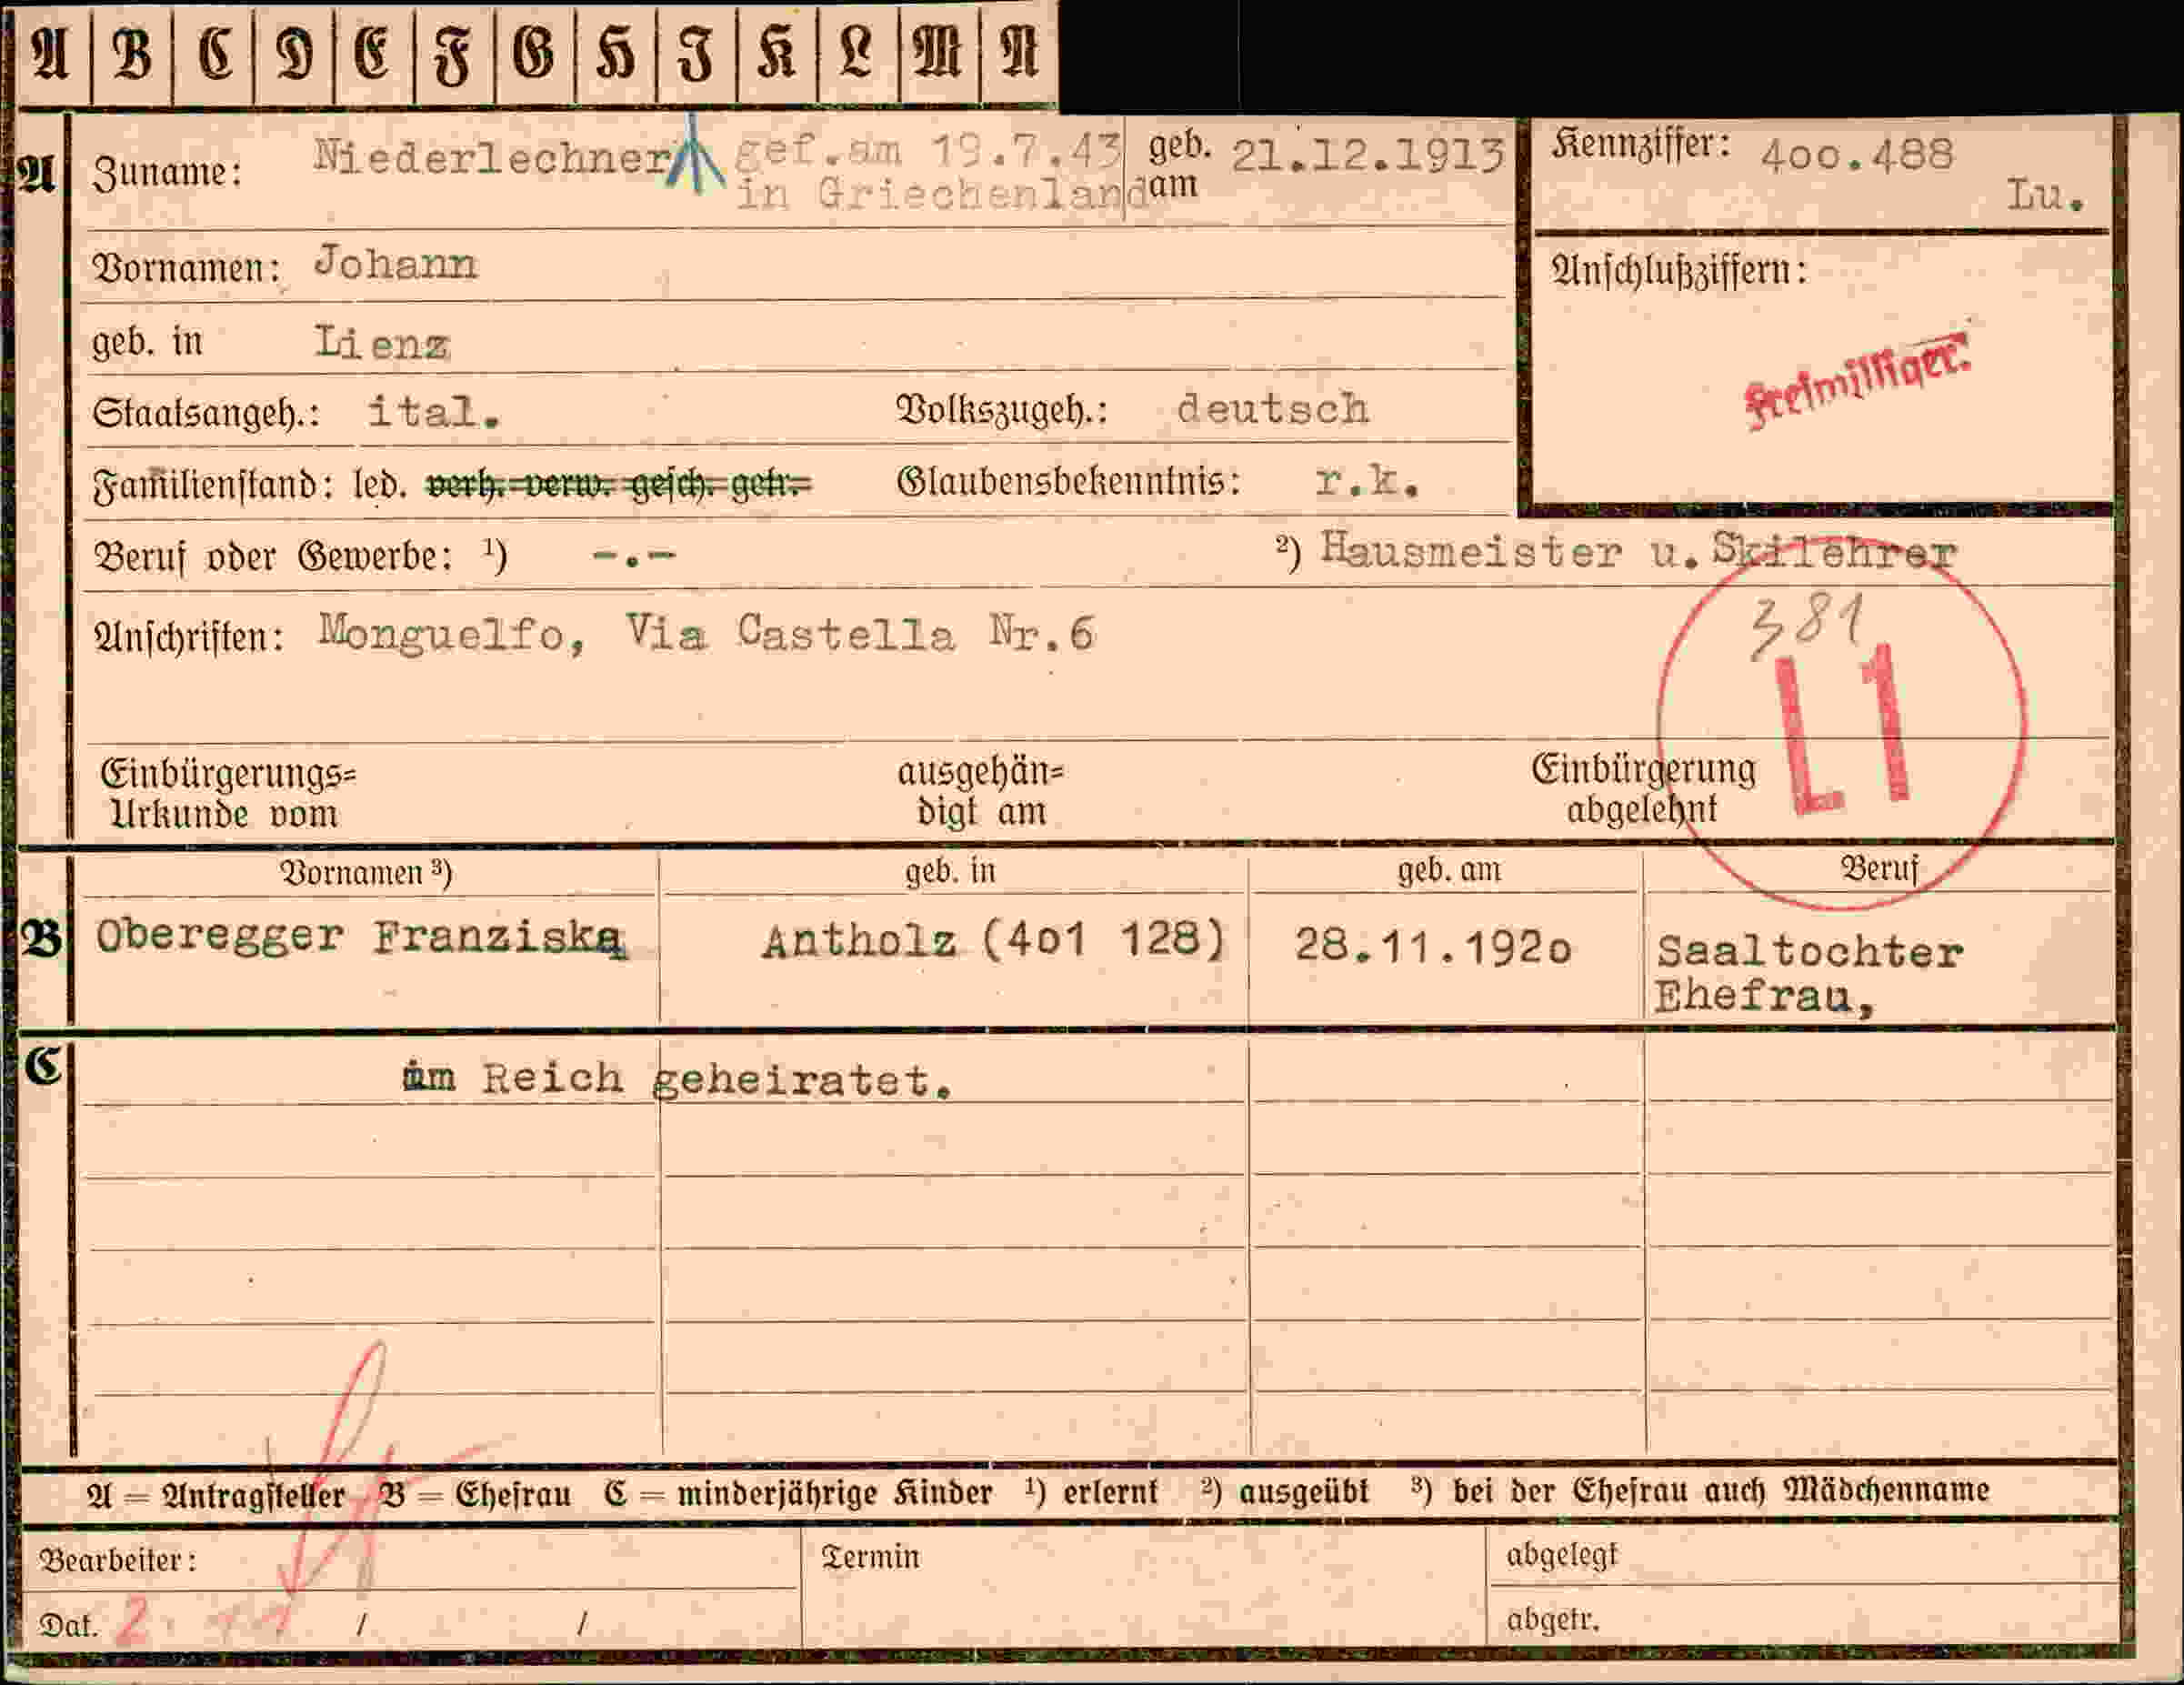 A B C D E F G H I K L M N
A Zuname: Niederlechner gef.am 19.7.43 geb. 21.12.1913 Kennziffer: 4oo.488
in Griechenland am Lu.
Vornamen: Johann Anschlußziffern:
geb. in Lienz Freiwilliger.
Staatsangeh.: ital. Volkszugeh.: deutsch
Familienstand: led. verh. verw. gesch. getr. Glaubensbekenntnis: r.k.
Beruf oder Gewerbe: ¹) -.- ²) Hausmeister u. Skilehrer
381
Anschriften: Monguelfo, Via Castella Nr.6
L1
Einbürgerungs= ausgehän= Einbürgerung
Urkunde vom digt am abgelehnt
Vornamen ³) geb. in geb. am Beruf
B Oberegger Franziska Antholz (4o1 128) 28.11.192o Saaltochter
Ehefrau,
C im Reich geheiratet.
A = Antragsteller B = Ehefrau C = minderjährige Kinder ¹) erlernt ²) ausgeübt ³) bei der Ehefrau auch Mädchenname
Bearbeiter: Termin abgelegt
Dat. 2. / / abgetr.